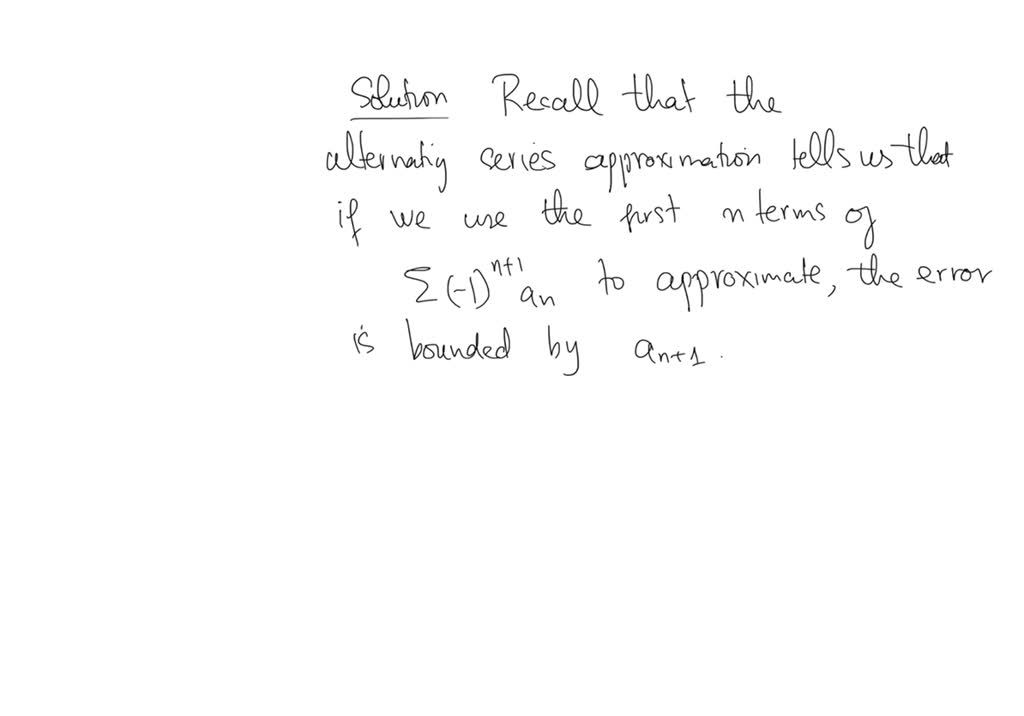 Solution Recall that the
alternatig series approximation tells us that
if we use the first n terms of
Σ(-1)^{n+1} a_n to approximate, the error
is bounded by a_{n+1}.